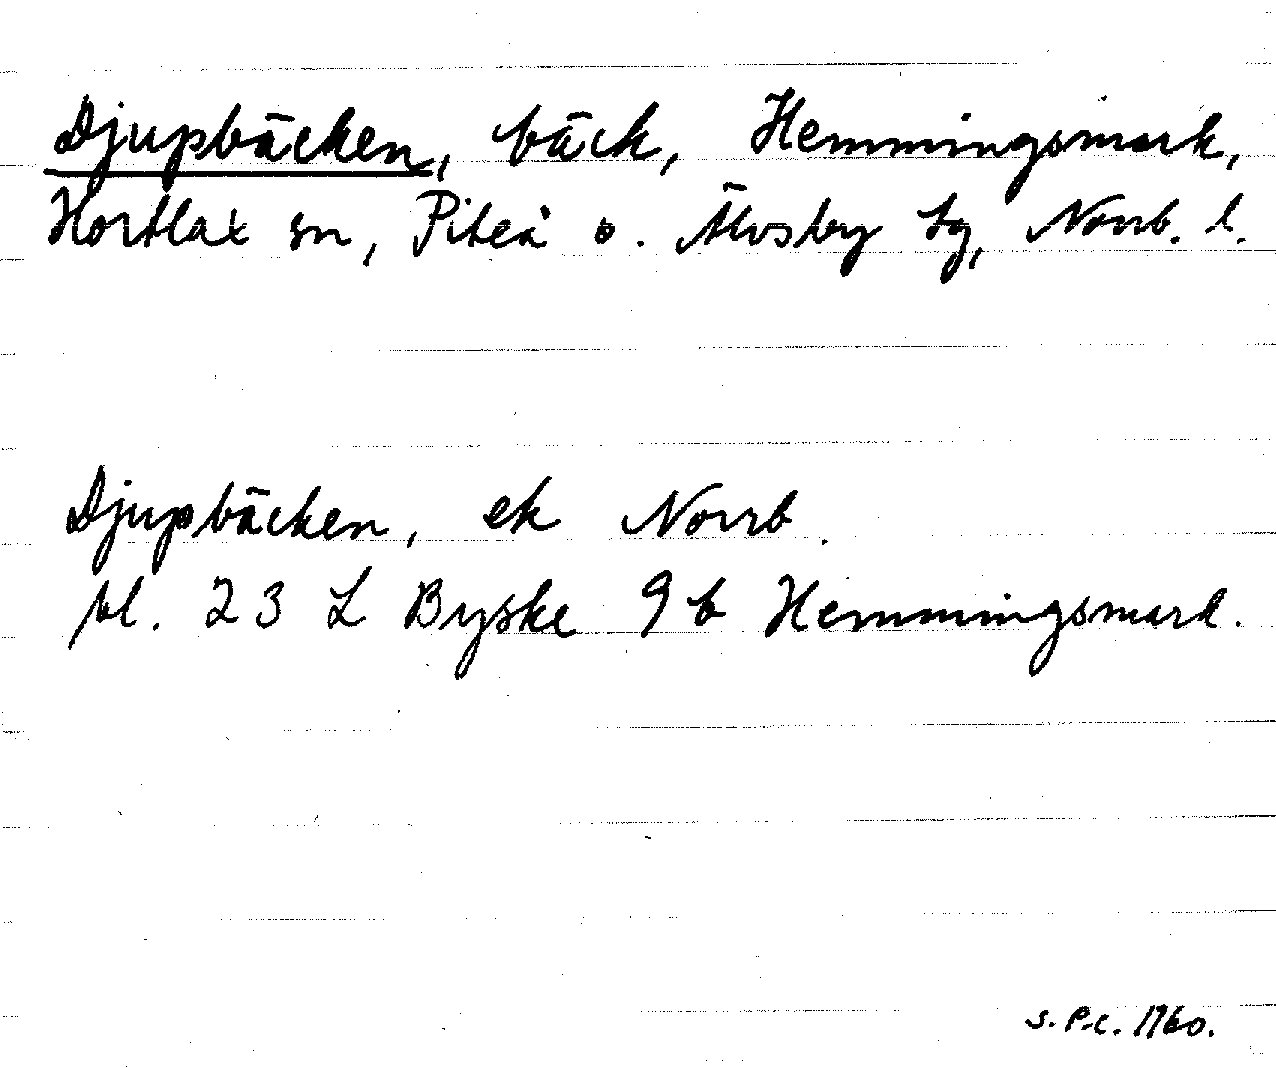 Djupbäcken, bäck, Hemmingsmark,
Hortlax sn, Piteå o. Älvsby tg, Norrb. l.
Djupbäcken, ek Norrb.
bl. 23 L Byske 9 b Hemmingsmark.
S. P.c. 1960.